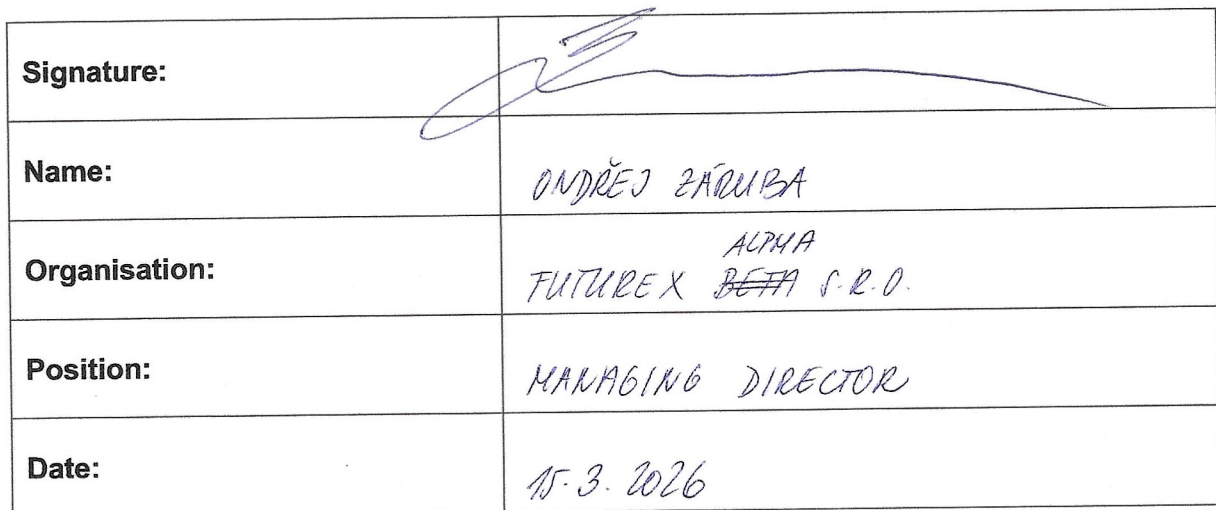 Signature:
Name: ONDŘEJ ZÁRUBA
Organisation: FUTUREX BETA ALPHA S.R.O.
Position: MANAGING DIRECTOR
Date: 15.3.2026